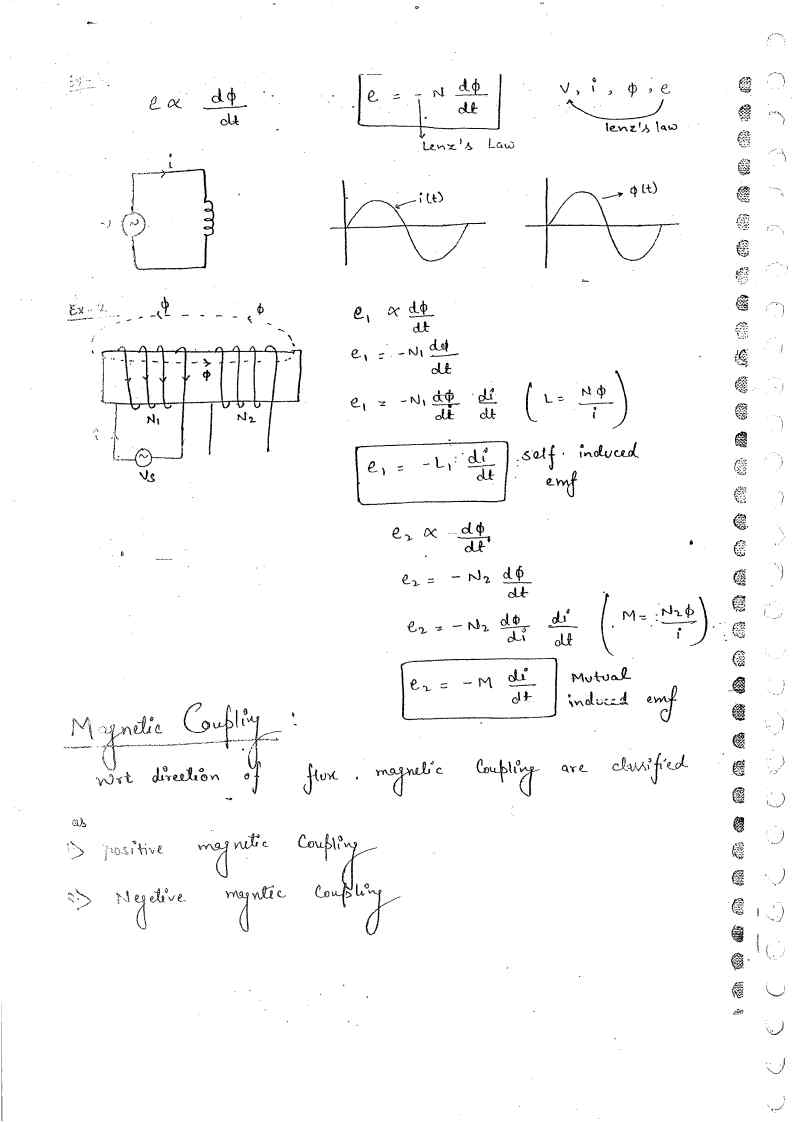 Ex-
e ∝ dφ/dt
e = - N dφ/dt
Lenz's Law
V, i, φ, e
lenz's law
i
i(t)
φ(t)
Ex-2
φ φ
φ
N1 N2
i
Vs
e1 ∝ dφ/dt
e1 = -N1 dφ/dt
e1 = -N1 dφ/dt di/dt (L = Nφ/i)
e1 = -L1 di/dt self induced
emf
e2 ∝ dφ/dt
e2 = -N2 dφ/dt
e2 = -N2 dφ/di di/dt (M = N2φ/i)
e2 = -M di/dt Mutual
induced emf
Magnetic Coupling :
Wrt direction of flux, magnetic Coupling are classified
as
1> positive magnetic Coupling
2> Negetive magntic Coupling